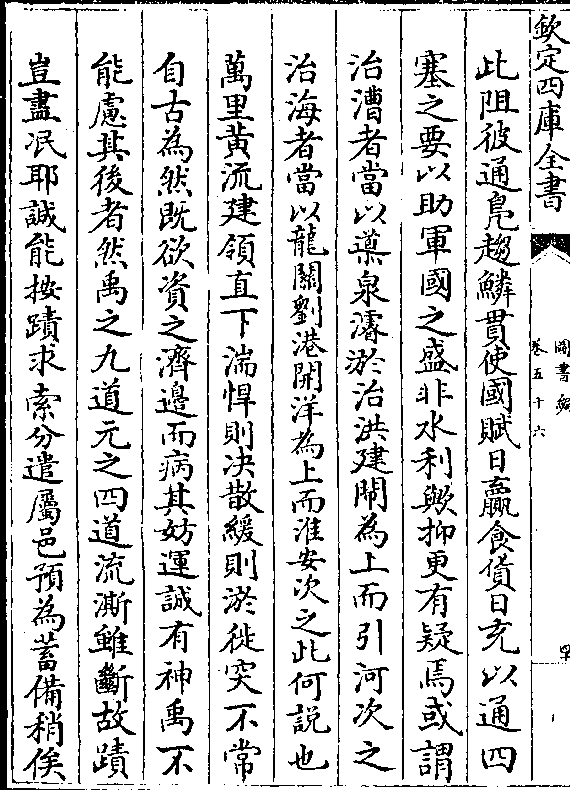 欽定四庫全書
圖書編
卷五十六
此阻彼通鳧趨鱗貫使國賦日贏食貨日充以通四
塞之要以助軍國之盛非水利歟抑更有疑焉或謂
治漕者當以導泉濬淤治洪建閘為上而引河次之
治海者當以龍關劉港開洋為上而淮安次之此何説也
萬里黃流建領直下湍悍則決散緩則淤徙突不常
自古為然既欲資之濟邊而病其妨運誠有神禹不
能慮其後者然禹之九道元之四道流澌雖斷故蹟
豈盡泯耶誠能按蹟求索分遣屬邑預為蓄備稍俟